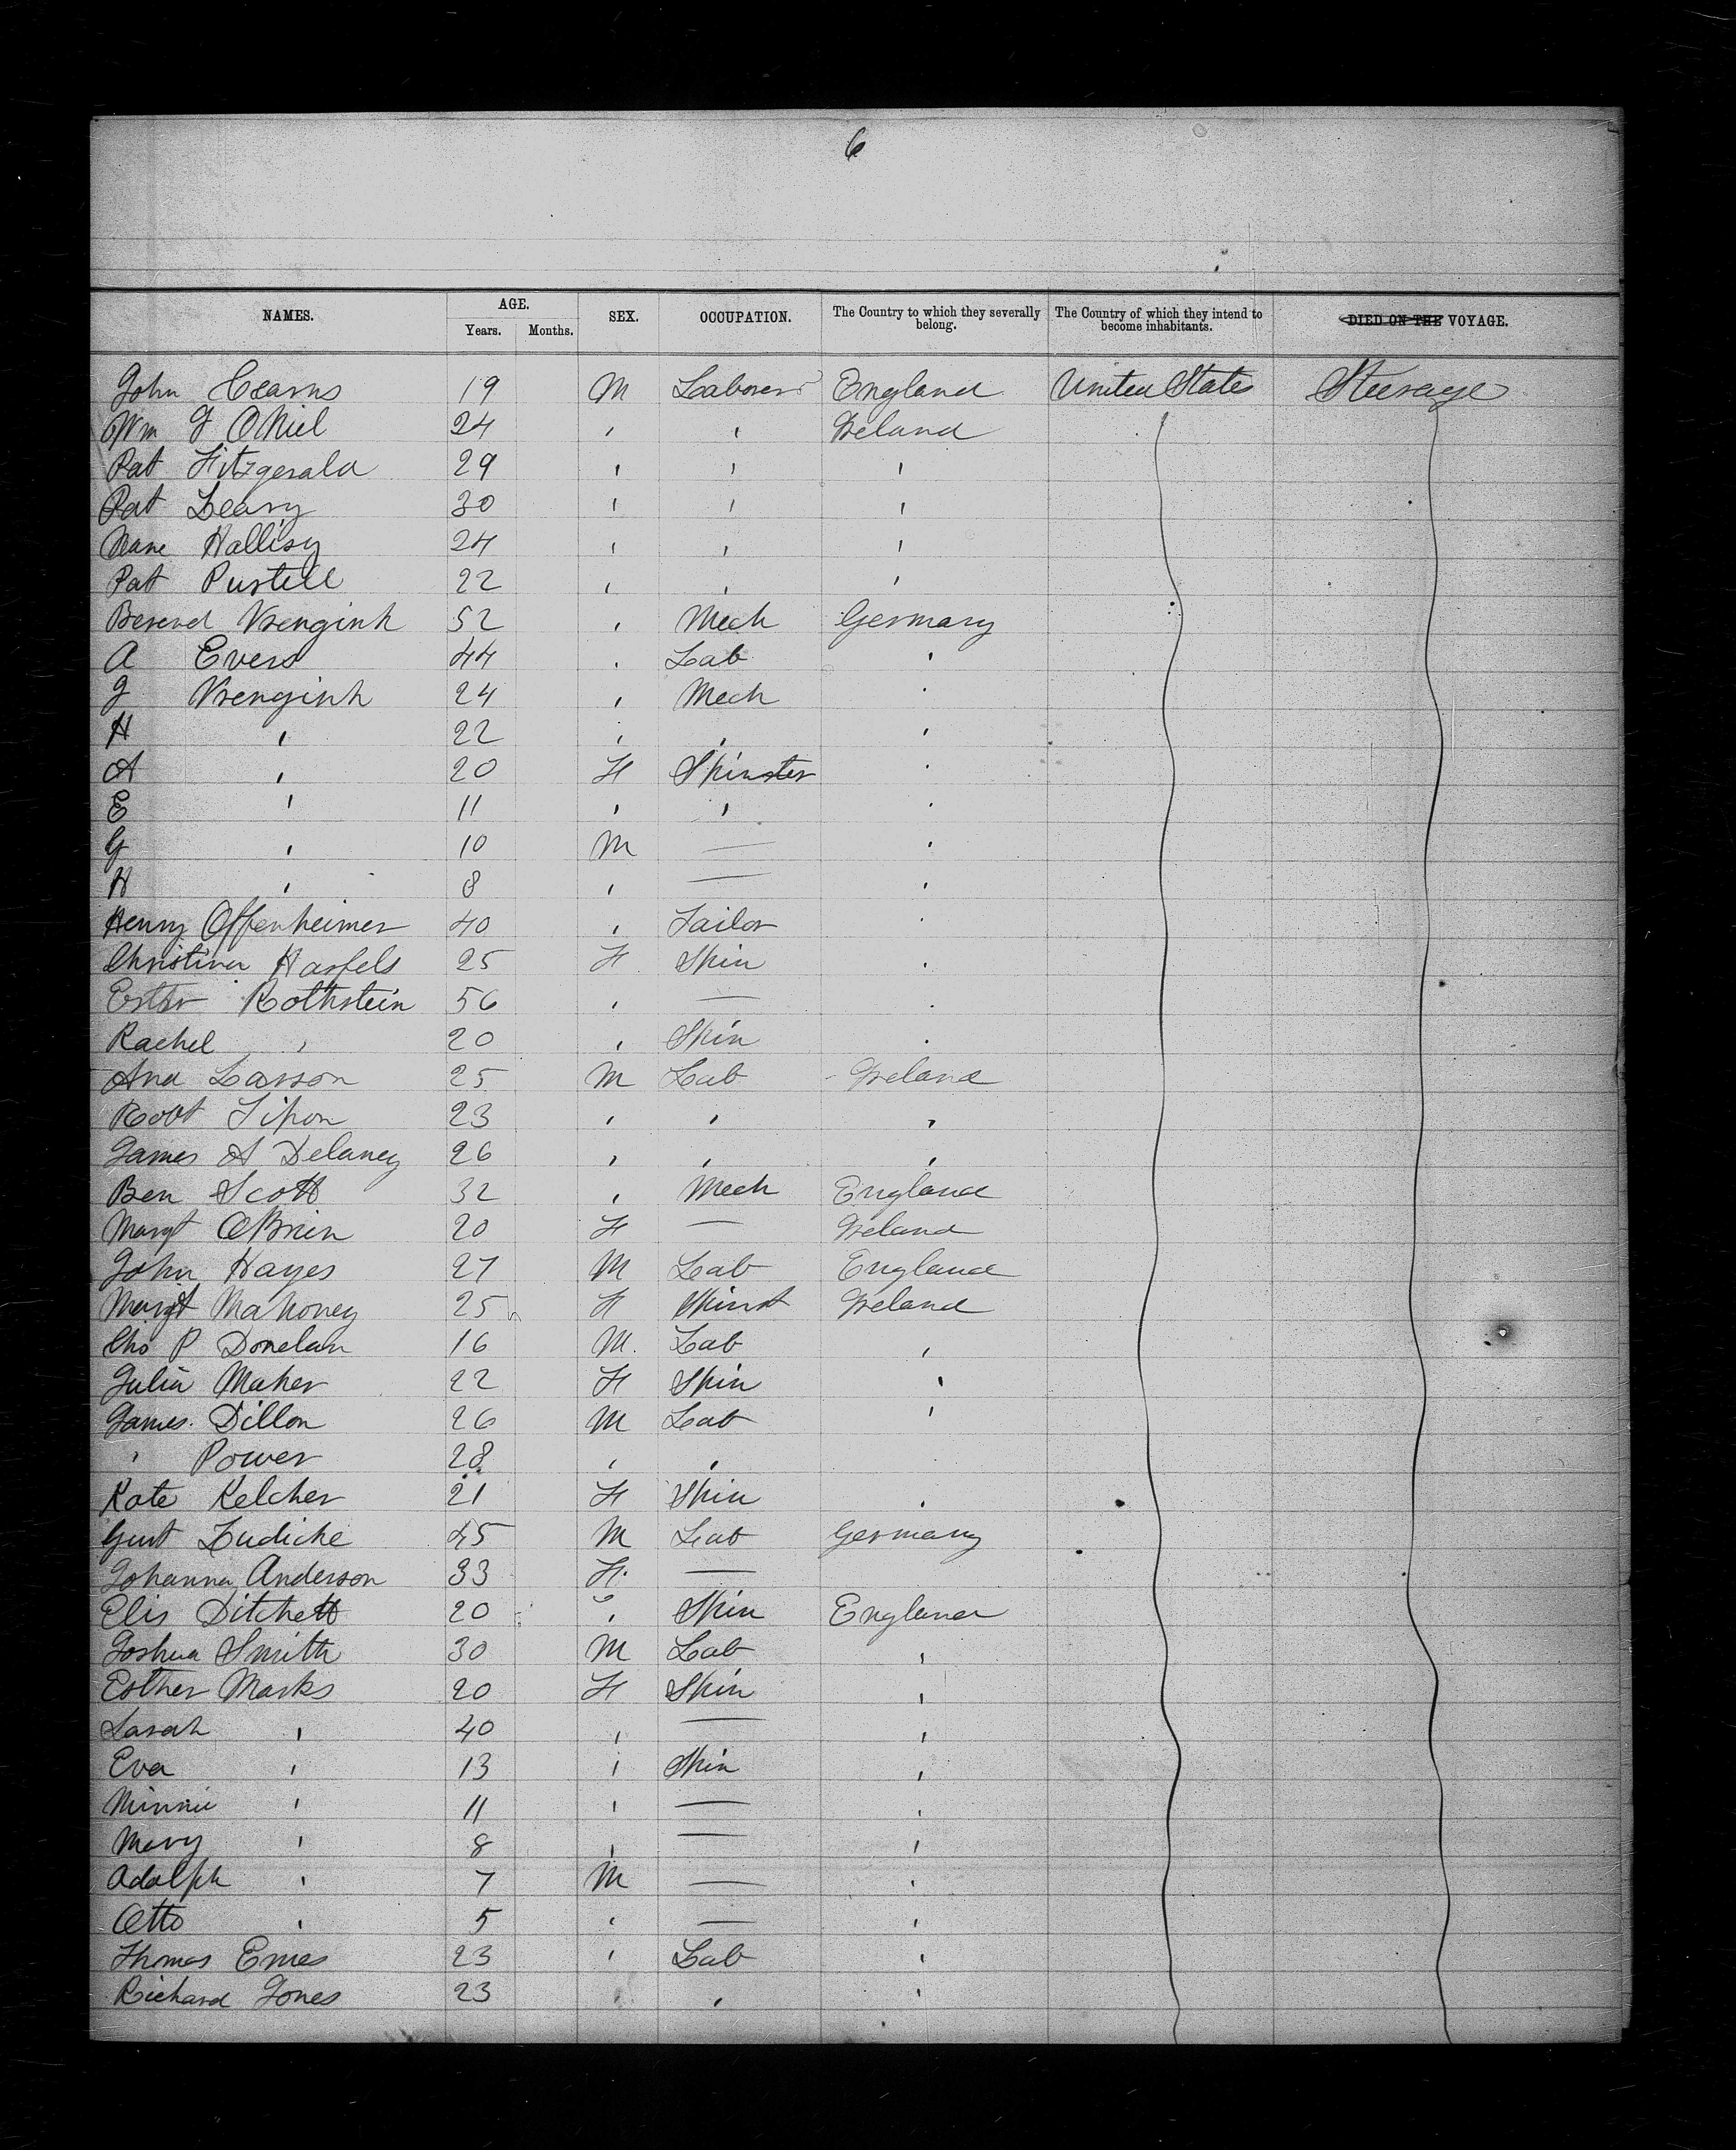 6
NAMES. AGE. Years. Months. SEX. OCCUPATION. The Country to which they severally belong. The Country of which they intend to become inhabitants. DIED ON THE VOYAGE.
John Cearns 19 M Laborers England United States Steerage
Wm J ONiel 24 " " Ireland
Pat Fitzgerald 29 " " "
Pat Leary 30 " " "
Hallisy 24 " " "
Pat Purtill 22 " " "
Berend Vrengink 52 " Mech Germany
A Evers 44 " Lab "
J Vrengink 24 " Mech "
H " 22 " " "
A " 20 F Spinster "
E " 11 " " "
G " 10 M — "
H " 8 " — "
Henry Offenheimer 40 " Tailor "
Christina Harfels 25 F Spin "
Esther Rothstein 56 " — "
Rachel " 20 " Spin "
And Larson 25 M Lab Ireland
Robt Tipon 23 " " "
James A Delaney 26 " " "
Ben Scott 32 " Mech England
Margt OBrien 20 F — Ireland
John Hayes 27 M Lab England
Margt Mahoney 25 F Spinst Ireland
Chs P Donelan 16 M. Lab "
Julia Maher 22 F Spin "
James Dillon 26 M Lab "
" Power 28 " " "
Kate Kelcher 21 F Spin "
Gust Ludicke 45 M Lab Germany
Johanna Anderson 33 F. —
Elis Ditchett 20 " Spin England
Joshua Smith 30 M Lab "
Esther Marks 20 F Spin "
Sarah " 40 " — "
Eva " 13 " Spin "
Minnie " 11 " — "
Mary " 8 " — "
Adolph " 7 M — "
Otto " 5 " — "
Thomas Emes 23 " Lab "
Richard Jones 23 " " "